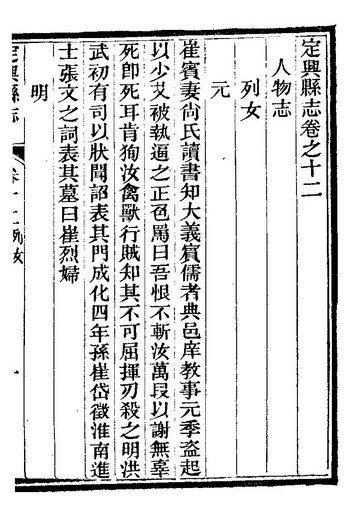 定興縣志卷之十二
人物志
列女
元
崔賓妻尚氏讀書知大義賓儒者典邑庠教事元季盗起
以少艾被執逼之正色罵曰吾恨不斬汝萬段以謝無辜
死卽死耳肯狥汝禽獸行賊知其不可屈揮刃殺之明洪
武初有司以狀聞詔表其門成化四年孫崔岱徵淮南進
士張文之詞表其墓曰崔烈婦
明
定興縣志
卷十二列女
一